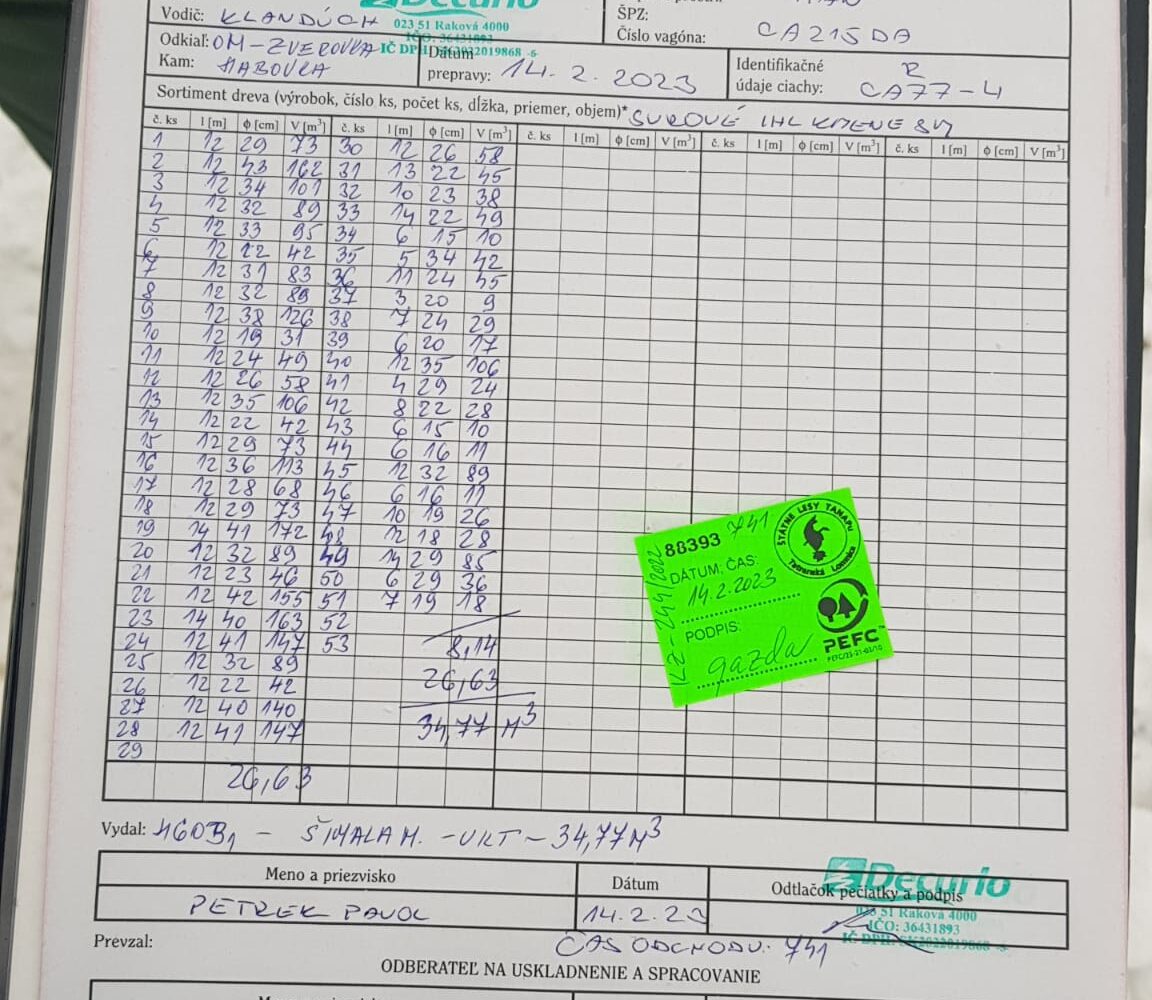 Decurio
Vodič: KLANDÚCH
023 51 Raková 4000
IČO: 36431893
IČ DPH: SK2022019868 -6-
ŠPZ:
Číslo vagóna: CA215DA
Odkiaľ: OM-ZVEROVKA
Kam: HABOVKA
Dátum
prepravy: 14.2.2023
Identifikačné R
údaje ciachy: CA77-4
Sortiment dreva (výrobok, číslo ks, počet ks, dĺžka, priemer, objem)* SUROVÉ IHL KMENE
č. ks l [m] ϕ [cm] V [m³] č. ks l [m] ϕ [cm] V [m³] č. ks l [m] ϕ [cm] V [m³] č. ks l [m] ϕ [cm] V [m³] č. ks l [m] ϕ [cm] V [m³]
1 12 29 73 30 12 26 58
2 12 43 162 31 13 22 45
3 12 34 101 32 10 23 38
4 12 32 89 33 14 22 49
5 12 33 95 34 6 15 10
6 12 22 42 35 5 34 42
7 12 31 83 36 11 24 45
8 12 32 89 37 3 20 9
9 12 38 126 38 7 24 29
10 12 19 31 39 6 20 17
11 12 24 49 40 12 35 106
12 12 26 58 41 4 29 24
13 12 35 106 42 8 22 28
14 12 22 42 43 6 15 10
15 12 29 73 44 6 16 11
16 12 36 113 45 12 32 89
17 12 28 68 46 6 16 11
18 12 29 73 47 10 19 26
19 14 41 172 48 12 18 28
20 12 32 89 49 14 29 85
21 12 23 46 50 6 29 36
22 12 42 155 51 7 19 18
23 14 40 163 52
24 12 41 147 53 8,14
25 12 32 89
26 12 22 42 26,63
27 12 40 140
28 12 41 147 34,77 M³
29
26,63
88393 741
ŠTÁTNE LESY TANAPU
Tatranská Lomnica
DÁTUM: ČAS:
14.2.2023
PODPIS:
gazda
KZ-244/2022
PEFC™
PEFC/23-21-03/10
Vydal: HGOB1 - ŠIMALA M. - VKT - 34,77M³
Meno a priezvisko Dátum Odtlačok pečiatky a podpis
PETREK PAVOL 14.2.23
Decurio
023 51 Raková 4000
IČO: 36431893
IČ DPH: SK2022019868 -6-
Prevzal: ČAS ODCHODU: 741
ODBERATEĽ NA USKLADNENIE A SPRACOVANIE
Meno a priezvisko